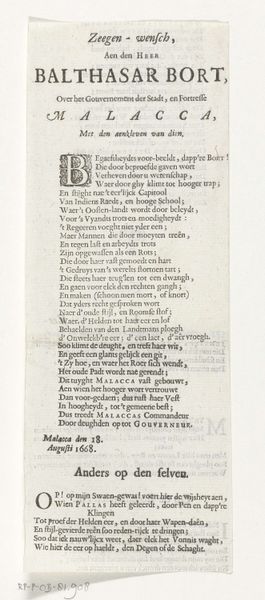 Zeegen-wensch,
Aen den HEER
BALTHASAR BORT,
Over het Gouvernement der Stadt, en Fortresse
MALACCA,
Met den aenkleven van dien.
BEgaeftheydts voor-beeldt, dapp're BORT!
Die door beproefde gaven wort
Verheven door u wetenschap,
Waer door ghy klimt tot hooger trap;
En stijght nae t'eer'lijck Capitool
Van Indiens Raedt, en hooge School;
Waer 't Oosten-landt wordt door beleydt,
Voor 's Vyandts trots en moedigheydt:
't Regeeren voeght niet yder een;
Maer Mannen die door moeyten treên,
En tegen last en arbeydts trots
Zijn opgewassen als een Rots;
Die door haer vast gemoedt en hart
't Gedruys van 's werelts stormen tart;
Die steets haer teug'len tot een dwangh,
En gaen voor elck den rechten gangh;
En maken (schoon men mort, of knort)
Dat yders recht gesproken wort
Naer d'oude stijl, en Roomse stof;
Waer d'Helden tot haer eer en lof
Behaelden van den Landtmans ploegh
d'Onwelckb're eer; d'een laet, d'aêr vroegh.
Soo klimt de deught, en treft haer wit,
En geeft een glants gelijck een git,
't Zy hoe, en waer het Roer sich wendt,
Her oude Padt wordt nae gerendt;
Dit tuyght MALACCA vast gebouwt,
Aen wien het hooger wort vertrouwt
Dan voor-gedaen; dus rust haer Vest
In hoogheydt, tot 't gemeene best;
Dus treedt MALACCAS Commandeur
Door deughden op tot GOUVERNEUR.
Malacca den 18.
Augusti 1668.
Anders op den selven.
OP! op mijn Swaen-gewas! voert hier de wijsheyt aen,
Wien PALLAS heeft geleerdt, door Pen en dapp're
Klingen
Tot proef der Helden eer, en door haer Wapen-daên,
En stijl-gevierde reên soo reden-rijck te dringen;
Soo dat ick nauw'lijcx weet, daer elck het Vonnis waght,
Wie hier de eer op haeldt, den Degen of de Schaght.
RP-P-OB-81.908